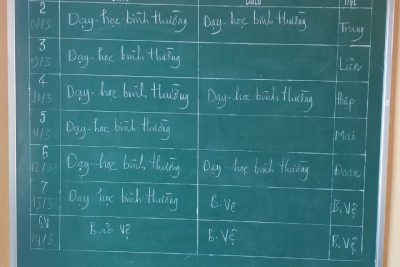 2 Dạy-học bình thường Dạy-học bình thường
/3 Trang
3 Dạy-học bình thường
09/3 Liên
4 Dạy-học bình thường Dạy-học bình thường
10/3 Hiệp
5 Dạy-học bình thường
11/3 Mai
6 Dạy-học bình thường Dạy-học bình thường
12/3 Đoan
7 Dạy-học bình thường B.Vệ B.Vệ
13/3
CN Bảo vệ B.Vệ B.Vệ
14/3